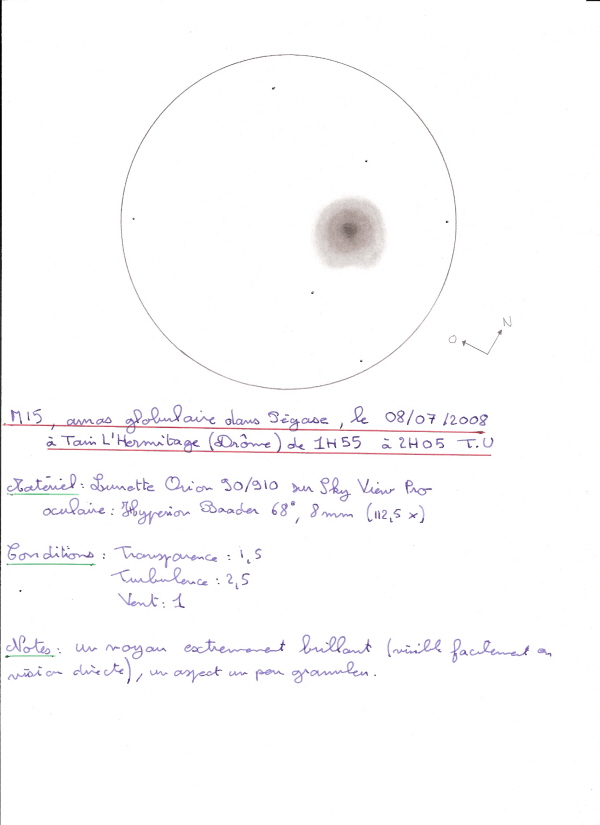 N
O
M15, amas globulaire dans Pégase, le 08/07/2008
à Tain L'Hermitage (Drôme) de 1H55 à 2H05 T.U
Matériel : Lunette Orion 90/910 sur Sky View Pro
oculaire : Hyperion Baader 68°, 8mm (112,5 x)
Conditions : Transparence : 1,5
Turbulence : 2,5
Vent : 1
Notes : un noyau extrement brillant (visible facilement en
vision directe), un aspect un peu granuleu.